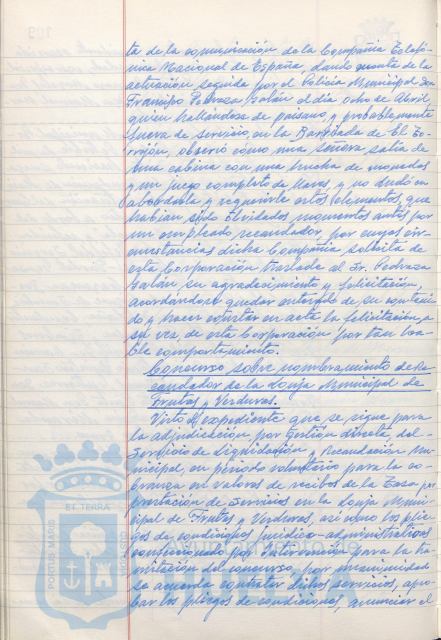 ta de la comunicación de la Compañia Telefó-
nica Nacional de España, dando cuenta de la
actuación seguida por el Policia Municipal Don
Francisco Pedraza Galán el día ocho de Abril,
quien hallandose de paisano, y probablemente
fuera de servicio, en la Barriada de El To-
rrejón, observó como una señora salia de
una cabina con una hucha de monedas
y un juego completo de llaves, y no dudó en
abordarla y requerirle estos elementos, que
habian sido olvidados momentos antes por
un empleado recaudador, por cuyas cir-
cunstancias dicha Compañia solicita de
esta Corporación traslade al Sr. Pedraza
Galán su agradecimiento y felicitación,
acordándose quedar enterado de su conteni-
do y hacer constar en acta la felicitación, a
su vez, de esta Corporación por tan loa-
ble comportamiento.
Concurso sobre nombramiento de Re-
caudador de la Lonja Municipal de
Frutas y Verduras.
Visto el expediente que se sigue para
la adjudicación por gestión directa, del
Servicio de Liquidación y Recaudación Mu-
nicipal, en periodo voluntario para la co-
branza en valores de recibos de la Tasa por
prestación de Servicios en la Lonja Munici-
pal de Frutas y Verduras, asi como los plie-
gos de condiciones juridico-administrativas
confeccionado por Intervención para la ha-
bilitación del concurso, por unanimidad
se acuerda contratar dichos servicios, apro-
bar los pliegos de condiciones, anunciar el
PORTUS MARIS
ET TERRA
CUSTODIA
HUELVA